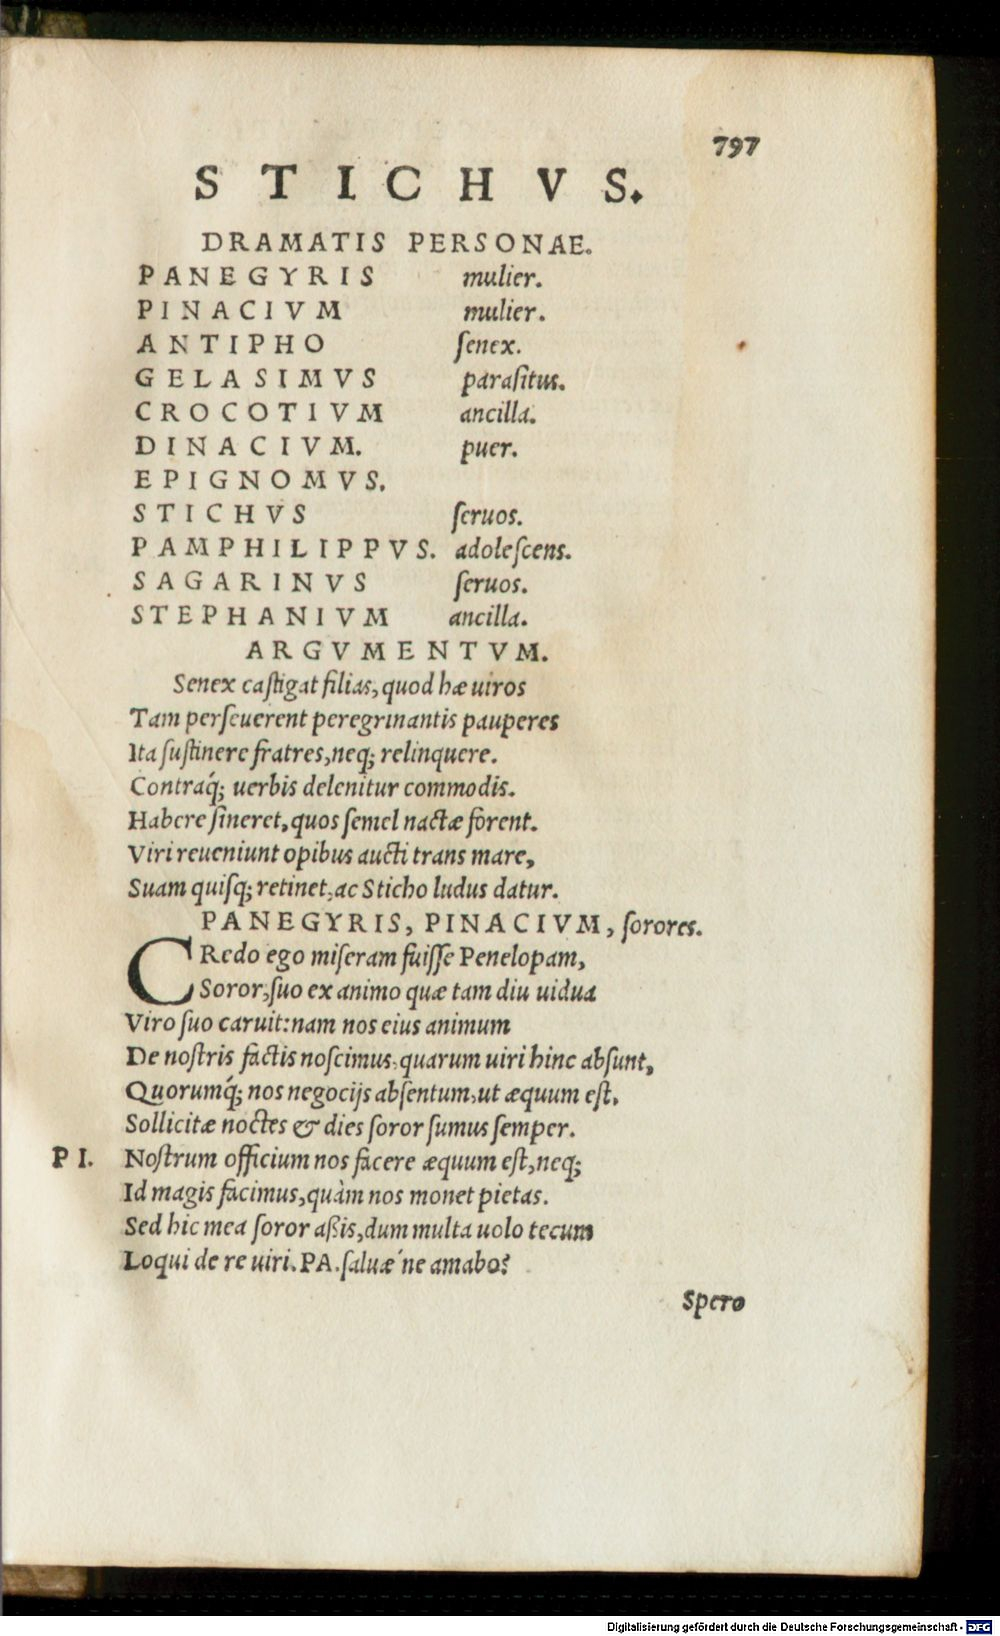 797
STICHVS.
DRAMATIS PERSONAE.
PANEGYRIS mulier.
PINACIVM mulier.
ANTIPHO ſenex.
GELASIMVS paraſitus.
CROCOTIVM ancilla.
DINACIVM. puer.
EPIGNOMVS.
STICHVS ſeruos.
PAMPHILIPPVS. adoleſcens.
SAGARINVS ſeruos.
STEPHANIVM ancilla.
ARGVMENTVM.
Senex caſtigat filias, quod hæ uiros
Tam perſeuerent peregrinantis pauperes
Ita ſuſtinere fratres, neq; relinquere.
Contraq́; uerbis delenitur commodis.
Habere ſineret, quos ſemel nactæ forent.
Viri reueniunt opibus aucti trans mare,
Suam quiſq; retinet, ac Sticho ludus datur.
PANEGYRIS, PINACIVM, ſorores.
CRedo ego miſeram fuiſſe Penelopam,
Soror, ſuo ex animo quæ tam diu uidua
Viro ſuo caruit: nam nos eius animum
De noſtris factis noſcimus, quarum uiri hinc abſunt,
Quorumq́; nos negocijs abſentum, ut æquum eſt,
Sollicitæ noctes & dies ſoror ſumus ſemper.
PI. Noſtrum officium nos facere æquum eſt, neq;
Id magis facimus, quàm nos monet pietas.
Sed hic mea ſoror aßis, dum multa uolo tecum
Loqui de re uiri. PA. ſaluǽ ne amabo?
Spero
Digitalisierung gefördert durch die Deutsche Forschungsgemeinschaft - DFG